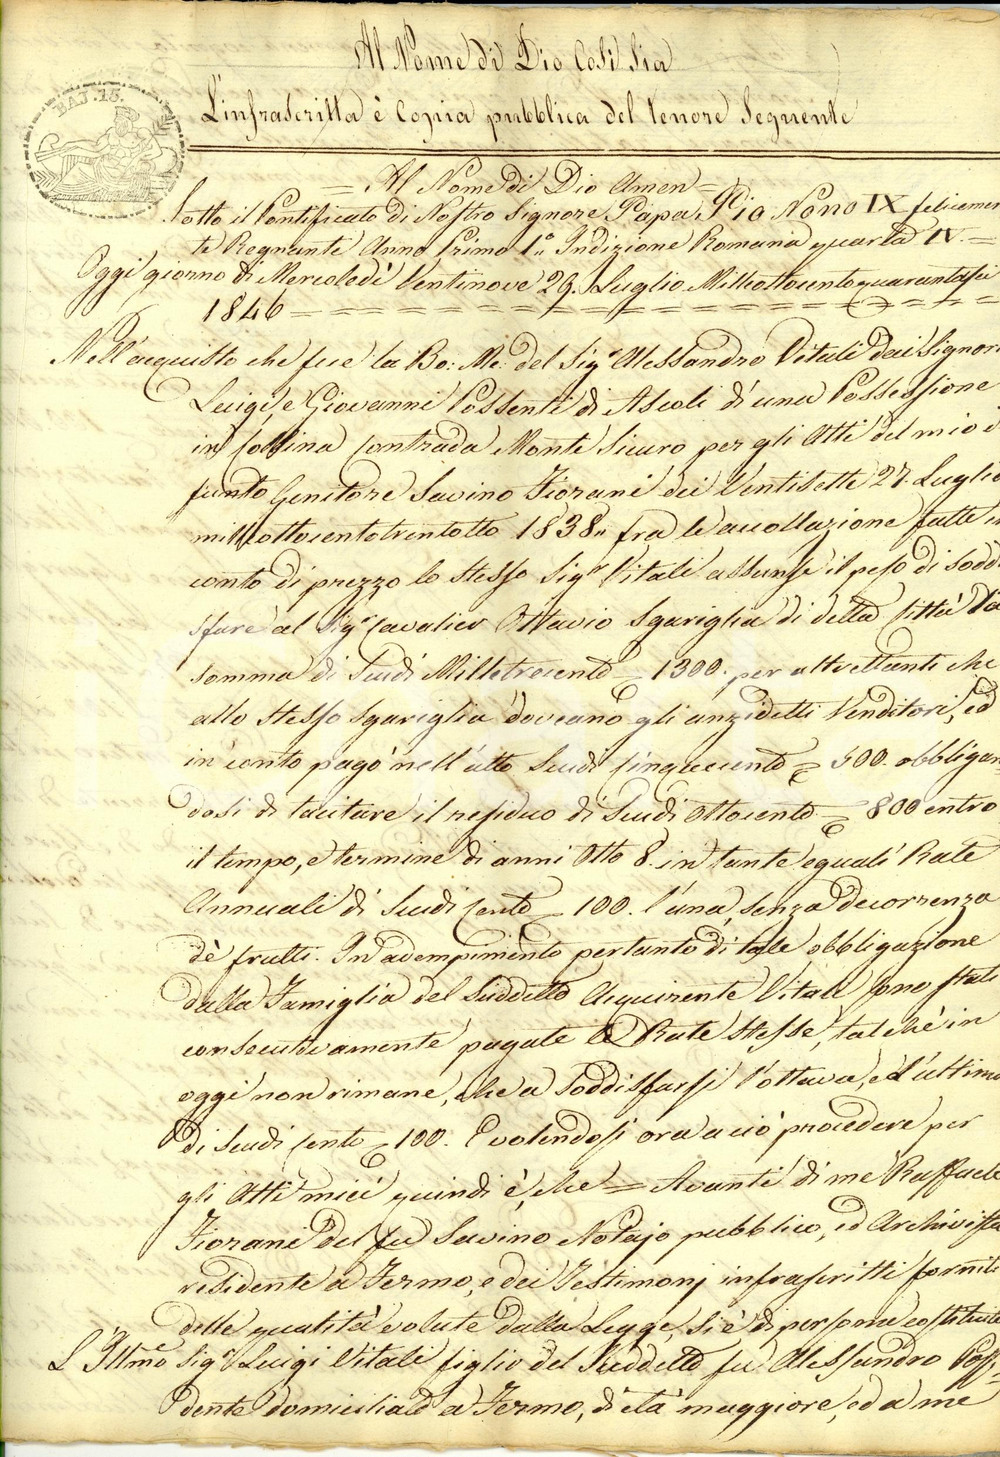 Al Nome di Dio Cosi Sia
BAJ. 15.
L'infrascritta è Copia pubblica del tenore Seguente
= Al Nome di Dio Amen =
Sotto il Pontificato di Nostro Signore Papa Pio Nono IX felicemen
te Regnante Anno Primo 1.° Indizione Romana quarta IV. =
Oggi giorno di Mercoledì Ventinove 29. Luglio Milleottocentoquarantasei
1846 = = = = = = = = = = = = = = = =
Nell'acquisto che fece la Bo: Me: del Sigr Alessandro Vitali dai Signori
Luigi e Giovanni Possenti di Ascoli d'una Possessione
in Collina Contrada Monte Sicuro per gli Atti del mio de
funto Genitore Savino Fiorani dei Ventisette 27. Luglio
milleottocentotrentotto 1838„ fra le accollazione fatte in
conto di prezzo lo stesso Sigr Vitali assunse il peso di soddi
sfare al Sigr Cavalier Ottavio Sgariglia di detta Città la
somma di Scudi Milletrecento = 1300. per altrettanti che
allo stesso Sgariglia doveano gli anzidetti Venditori, ed
in conto pagò nell'atto Scudi Cinquecento = 500. obbligan
dosi di tacitare il residuo di Scudi Ottocento = 800 entro
il tempo, e termine di anni Otto 8. in tante eguali Rate
Annuali di Scudi Cento = 100. l'una, senza decorrenza
dè frutti. In adempimento pertanto di tale obbligazione
dalla Famiglia del Suddetto Acquirente Vitali sono state
consecutivamente pagate le Rate stesse, talchè in
oggi non rimane, che a Soddisfarsi l'ottava, ed ultima
di Scudi Cento = 100. E volendosi ora a ciò procedere per
gli Atti miei quindi è, che = Avanti di me Raffaele
Fiorani del fu Savino Notajo pubblico, ed Archivista
residente a Fermo, e dei Testimonj infrascritti forniti
delle qualità volute dalla Legge, si è di persona costituito
L'Illmo Sigr Luigi Vitali figlio del Suddetto fu Alessandro Possi=
dente domiciliato a Fermo, di età maggiore, ed a me